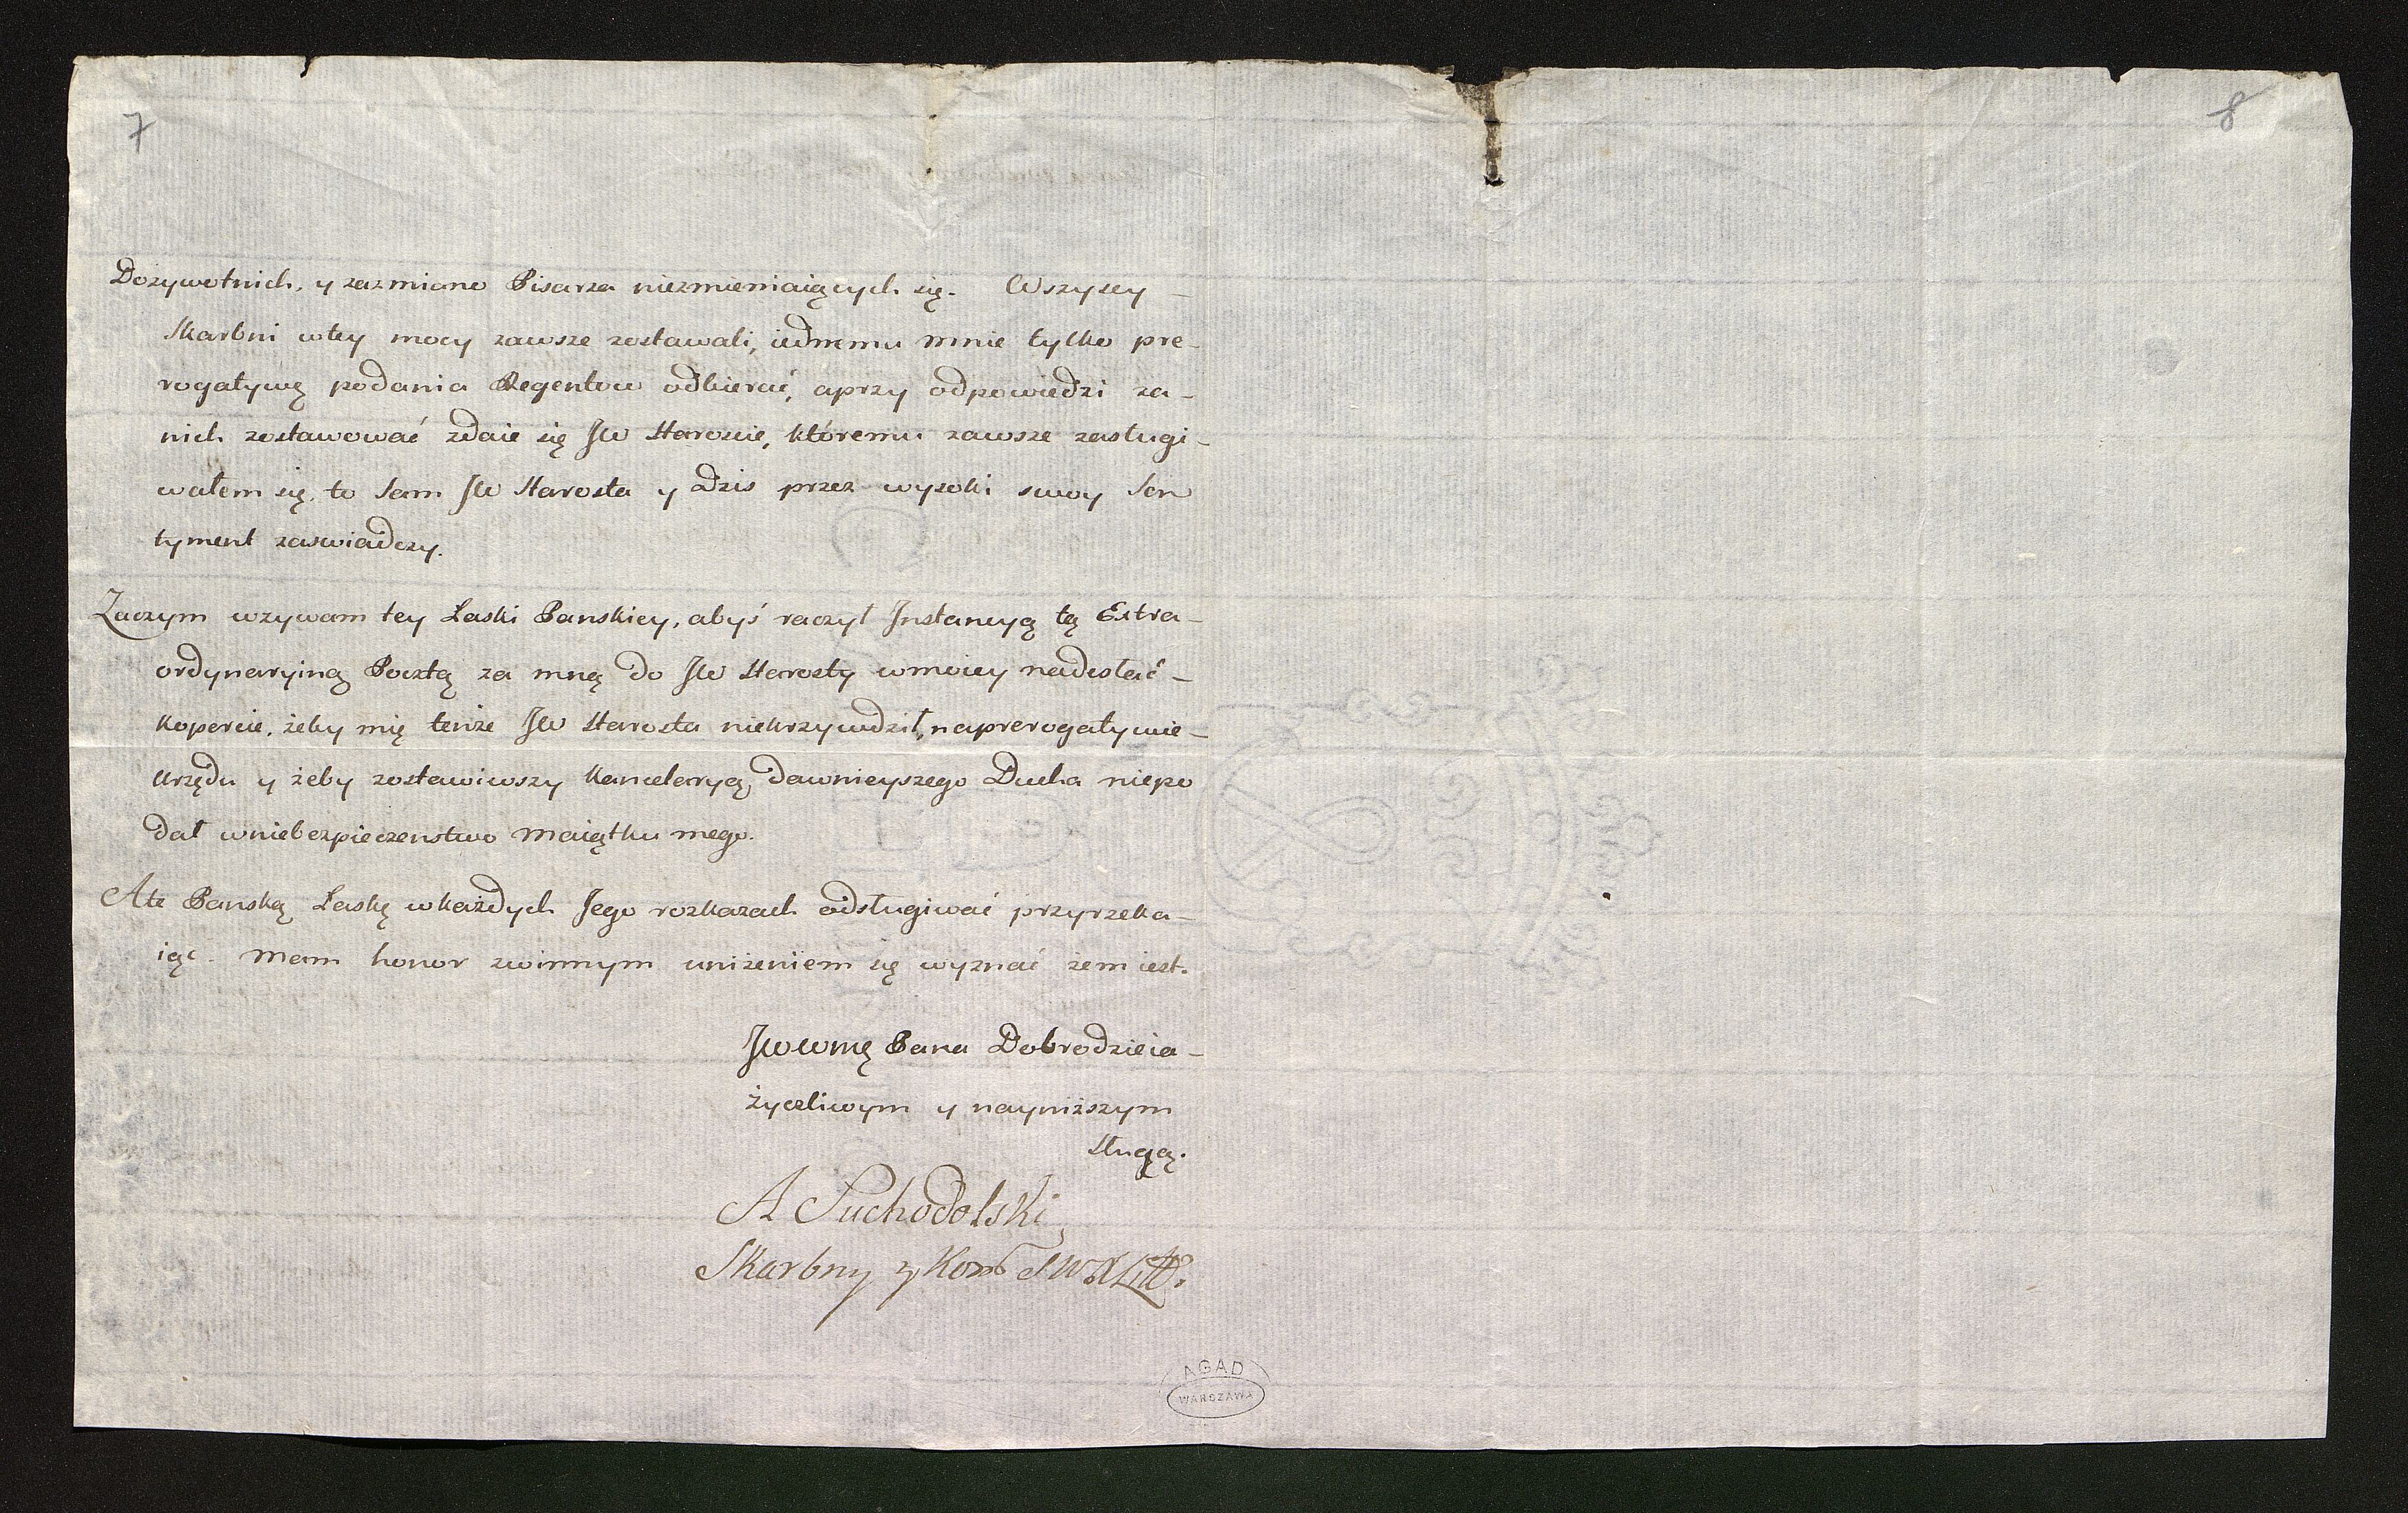 7
8
Dożywotnich, y zazmiano Pisarza niezmieniaiących się. Wszyscy
Skarbni wtey mocy zawsze zostawali, iednemu mnie tylko pre-
rogatywę podania Regentow odbierać, aprzy odpowiedzi za-
nich zostawować zdaie się JW Staroscie, któremu zawsze zasługi-
wałem się, to sam JW Starosta y Dzis przez wysoki swoy Sen
tyment zaswiadczy.
Zaczym wzywam tey Łaski Panskiey, abyś raczył Instancyą tę Extra-
ordynaryiną Pocztą za mną do JW Starosty wmoiey nadesłać-
kopercie, żeby mię tenże JW Starosta niekrzywdził, naprerogatywie-
urzędu y żeby zostawiwszy Kancelaryą, dawnieyszego Ducha niepo
dał wniebezpieczenstwo Maiątku mego.
A te Panską Łaskę wkażdych Jego rozkazach odsługiwać przyrzeka-
iąc. Mam honor zwinnym uniżeniem się wyznać żem iest.
JWWMę Pana Dobrodzieia-
życzliwym y nayniższym
Sługą.
A Suchodolski
Skarbny y
AGAD
WARSZAWA